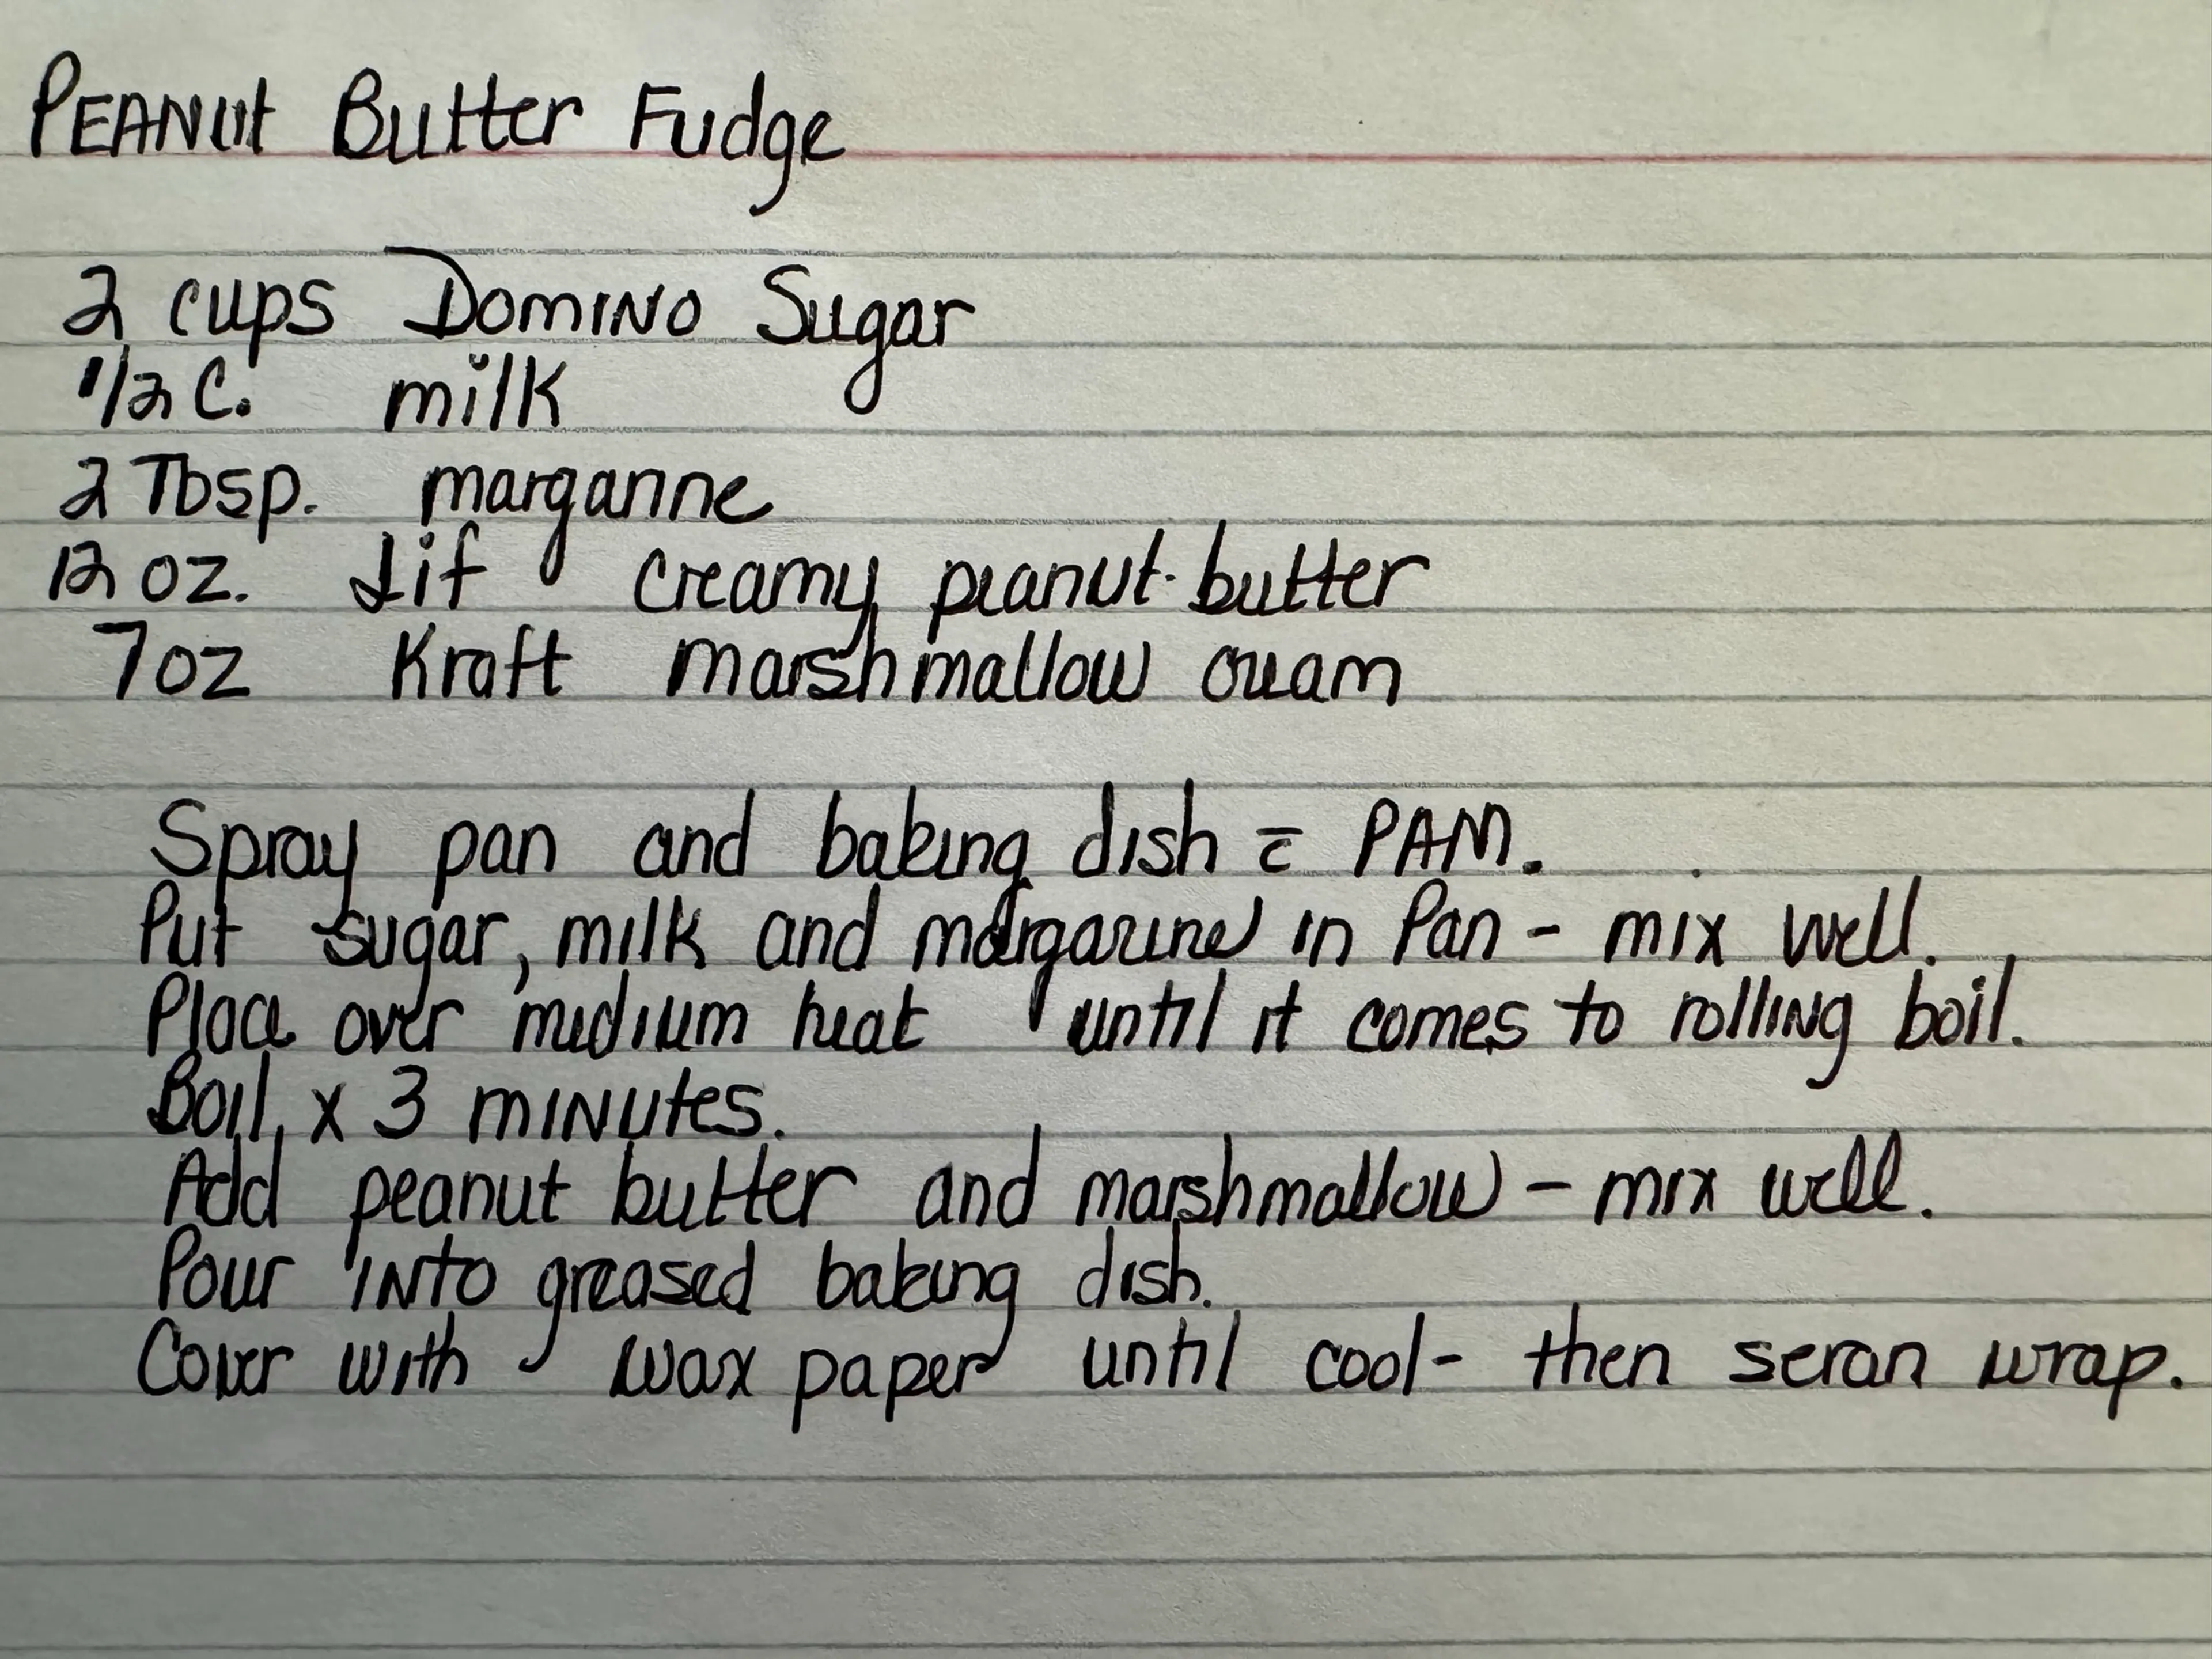 PEANut Butter Fudge
2 cups Domino Sugar
1/2 C. milk
2 Tbsp. margarine
12 oz. Jif creamy peanut butter
7 oz Kraft marshmallow cream
Spray pan and baking dish c̄ PAM.
Put sugar, milk and margarine in Pan - mix well.
Place over medium heat until it comes to rolling boil.
Boil x 3 minutes.
Add peanut butter and marshmallow - mix well.
Pour into greased baking dish.
Cover with wax paper until cool - then seran wrap.